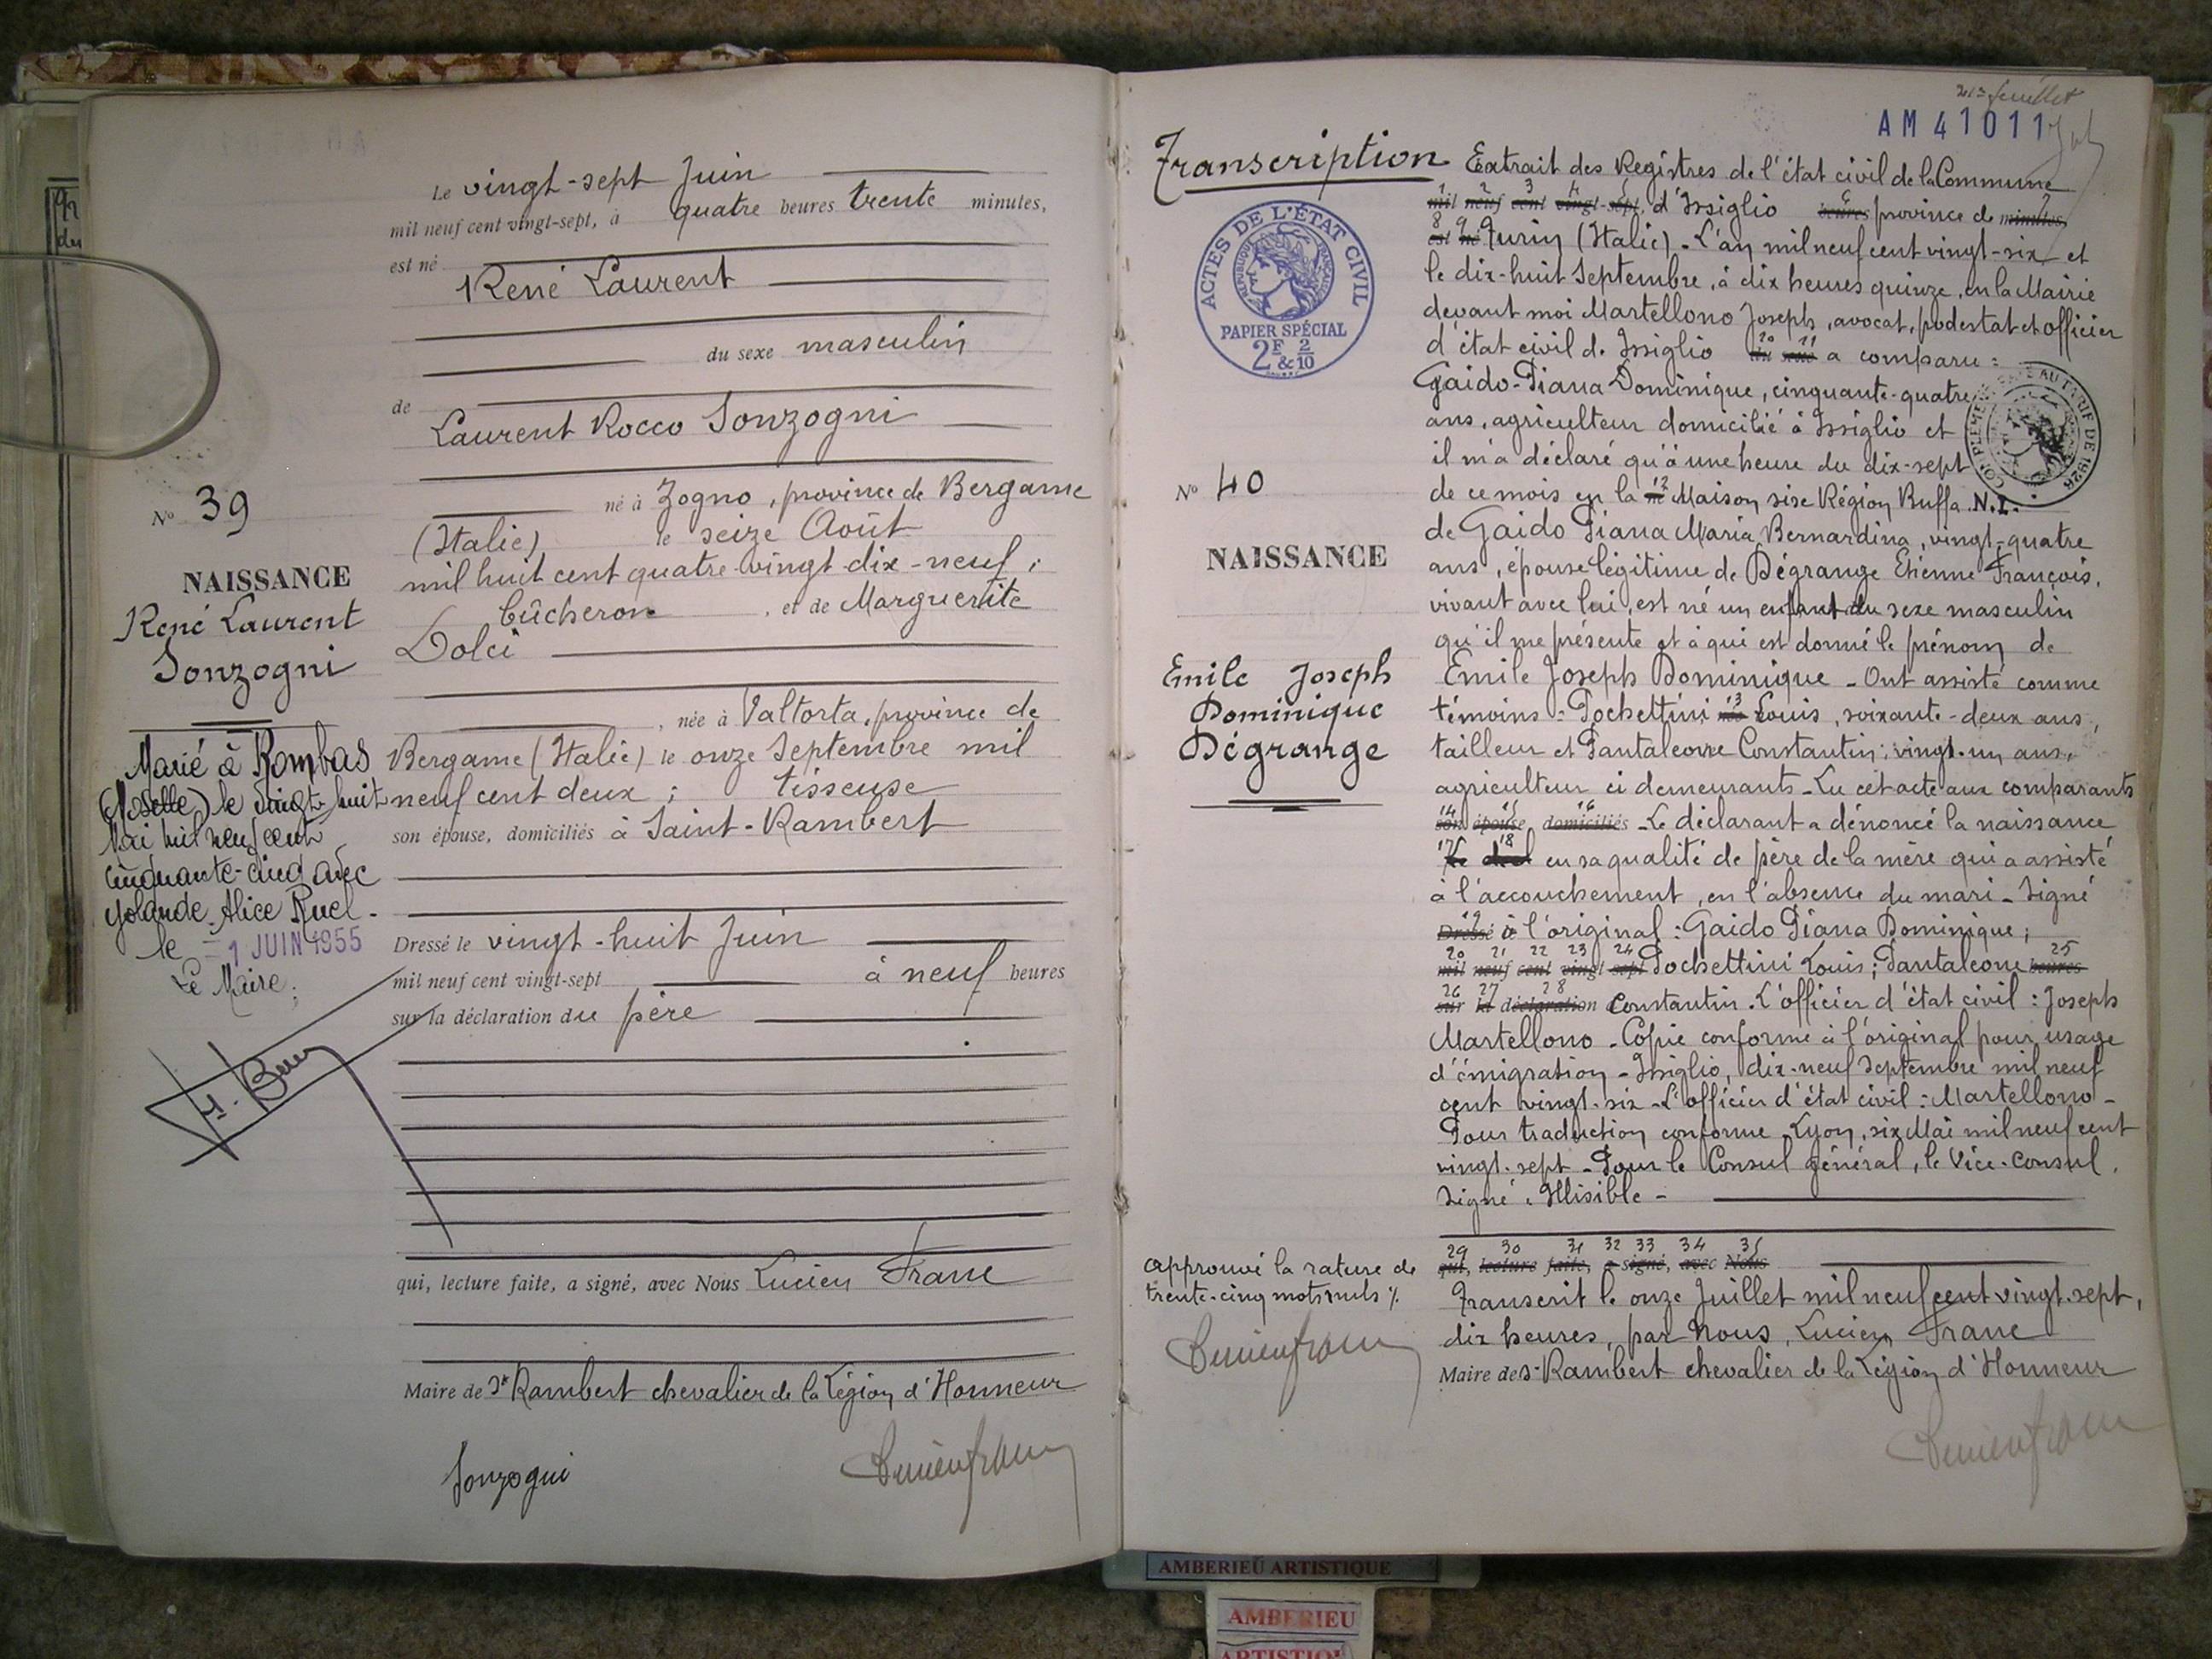 Le vingt-sept Juin
mil neuf cent vingt-sept, à quatre heures trente minutes,
est né
René Laurent
du sexe masculin
de
Laurent Rocco Sonzogni
né à Zogno, province de Bergame
(Italie) le seize Août
mil huit cent quatre-vingt-dix-neuf ;
bûcheron, et de Marguerite
Dolci
, née à Valtorta, province de
Bergame (Italie) le onze Septembre mil
neuf cent deux ; tisseuse
son épouse, domiciliés à Saint-Rambert
Dressé le vingt-huit Juin
mil neuf cent vingt-sept à neuf heures
sur la déclaration du père
qui, lecture faite, a signé, avec Nous Lucien Franc
Maire de St Rambert chevalier de la Légion d'Honneur
Sonzogni
Lucien Franc
No 39
NAISSANCE
René Laurent
Sonzogni
Marié à Rombas
(Moselle) le vingt-huit
Mai mil neuf cent
cinquante-cinq avec
Yolande Alice Ruel -
le - 1 JUIN 1955
Le Maire :
21e feuillet
AM 41011
Transcription Extrait des Registres de l'état civil de la Commune
1 2 3 4 5
mil neuf cent vingt-sept, d'Issiglio heures province de minutes,
8 9
est né Turin (Italie) - L'an mil neuf cent vingt-six et
le dix-huit Septembre, à dix heures quinze, en la Mairie
devant moi Martellono Joseph, avocat, podestat et officier
d'état civil d. Issiglio du sexe a comparu :
10 11
Gaido-Piana Dominique, cinquante-quatre
ans, agriculteur domicilié à Issiglio et
il m'a déclaré qu'à une heure du dix-sept
de ce mois en la né 12 Maison sise Région Buffa N.I.
de Gaido Piana Maria Bernardina, vingt-quatre
ans, épouse légitime de Dégrange Etienne François,
vivant avec lui, est né un enfant du sexe masculin
qu'il me présente et à qui est donné le prénom de
Emile Joseph Dominique - Ont assisté comme
témoins : Pochettini 13 Louis, soixante-deux ans,
tailleur et Pantaleone Constantin, vingt-un ans,
agriculteur ci demeurants - Lu cet acte aux comparants
14 15 16
son épouse, domiciliés - Le déclarant a dénoncé la naissance
17 18
en sa qualité de père de la mère qui a assisté
à l'accouchement, en l'absence du mari - Signé
19
Dressé à l'original : Gaido Piana Dominique ;
20 21 22 23 24 25
mil neuf cent vingt-sept Pochettini Louis ; Pantaleone heures
26 27 28
sur la déclaration Constantin. L'officier d'état civil : Joseph
Martellono - Copie conforme à l'original pour usage
d'émigration - Issiglio, dix-neuf Septembre mil neuf
cent vingt-six - L'officier d'état civil : Martellono -
Pour traduction conforme Lyon, six Mai mil neuf cent
vingt-sept - Pour le Consul général, le Vice-Consul.
Signé : Illisible -
29 30 31 32 33 34 35
qui, lecture faite, a signé, avec Nous
Transcrit le onze Juillet mil neuf cent vingt-sept,
dix heures, par Nous, Lucien Franc
Maire de St Rambert chevalier de la Légion d'Honneur
Lucien Franc
ACTES DE L'ÉTAT CIVIL
RÉPUBLIQUE FRANÇAISE
PAPIER SPÉCIAL
2F & 2/10
No 40
NAISSANCE
Emile Joseph
Dominique
Dégrange
approuvé la rature de
trente-cinq mots nuls
Lucien Franc
AMBERIEU ARTISTIQUE
AMBERIEU
ARTISTIQUE